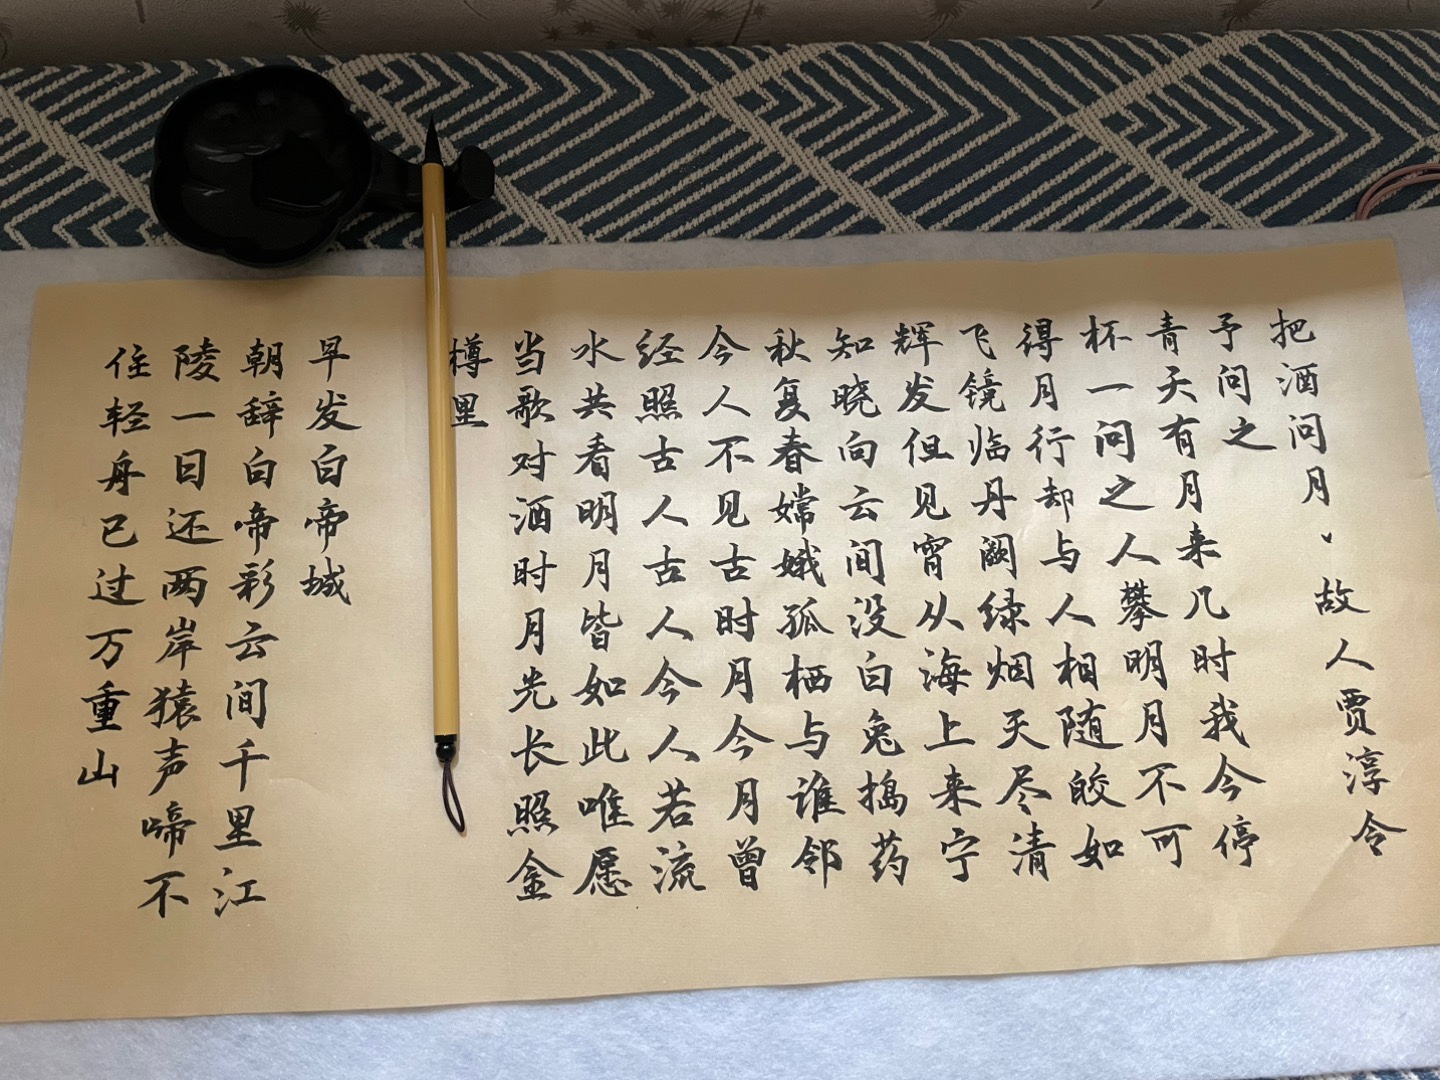 把酒问月、故人贾淳令
予问之
青天有月来几时我今停
杯一问之人攀明月不可
得月行却与人相随皎如
飞镜临丹阙绿烟天尽清
辉发但见宵从海上来宁
知晓向云间没白兔捣药
秋复春嫦娥孤栖与谁邻
今人不见古时月今月曾
经照古人古人今人若流
水共看明月皆如此唯愿
当歌对酒时月光长照金
樽里
早发白帝城
朝辞白啼彩云间千里江
陵一日还两岸猿声啼不
住轻舟已过万重山